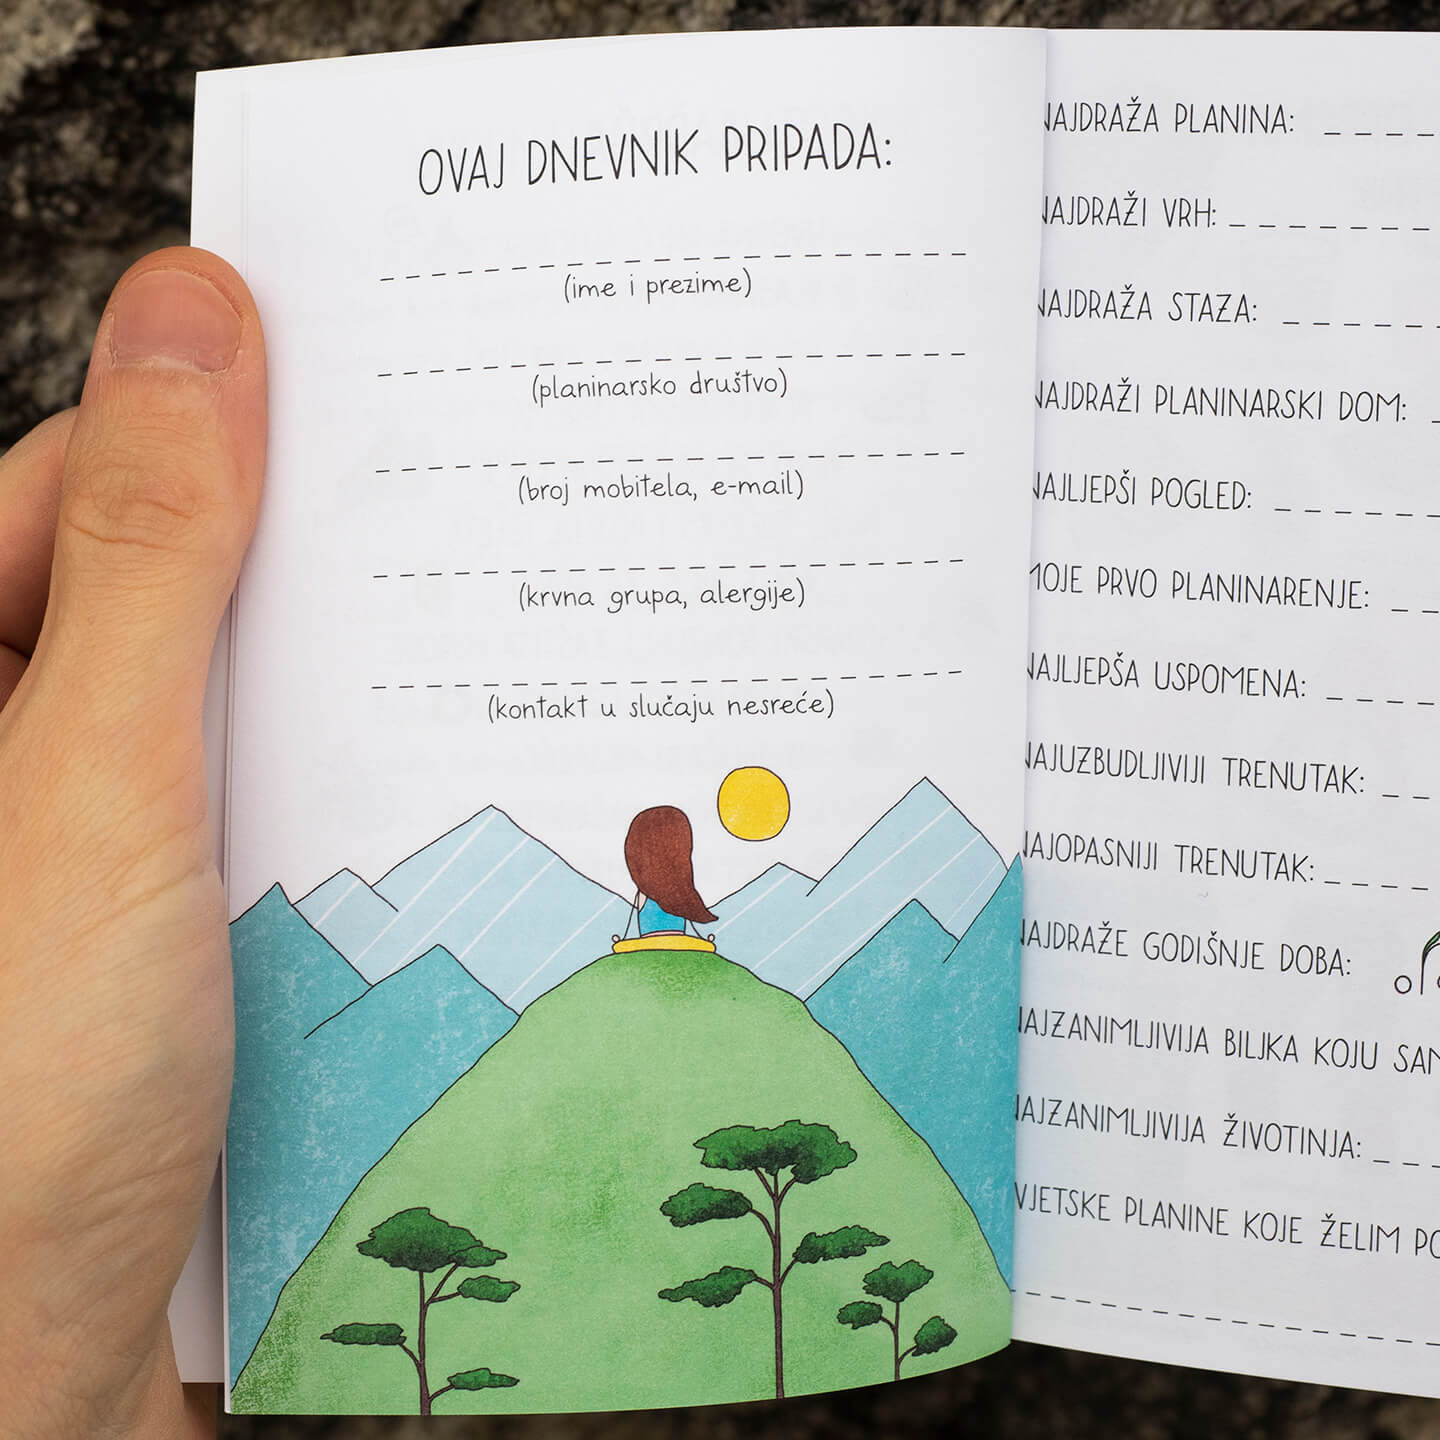 OVAJ DNEVNIK PRIPADA:
(ime i prezime)
(planinarsko društvo)
(broj mobitela, e-mail)
(krvna grupa, alergije)
(kontakt u slučaju nesreće)
NAJDRAŽA PLANINA:
NAJDRAŽI VRH:
NAJDRAŽA STAZA:
NAJDRAŽI PLANINARSKI DOM:
NAJLJEPŠI POGLED:
MOJE PRVO PLANINARENJE:
NAJLJEPŠA USPOMENA:
NAJUZBUDLJIVIJI TRENUTAK:
NAJOPASNIJI TRENUTAK:
NAJDRAŽE GODIŠNJE DOBA:
NAJZANIMLJIVIJA BILJKA KOJU
NAJZANIMLJIVIJA ŽIVOTINJA:
SVJETSKE PLANINE KOJE ŽELIM